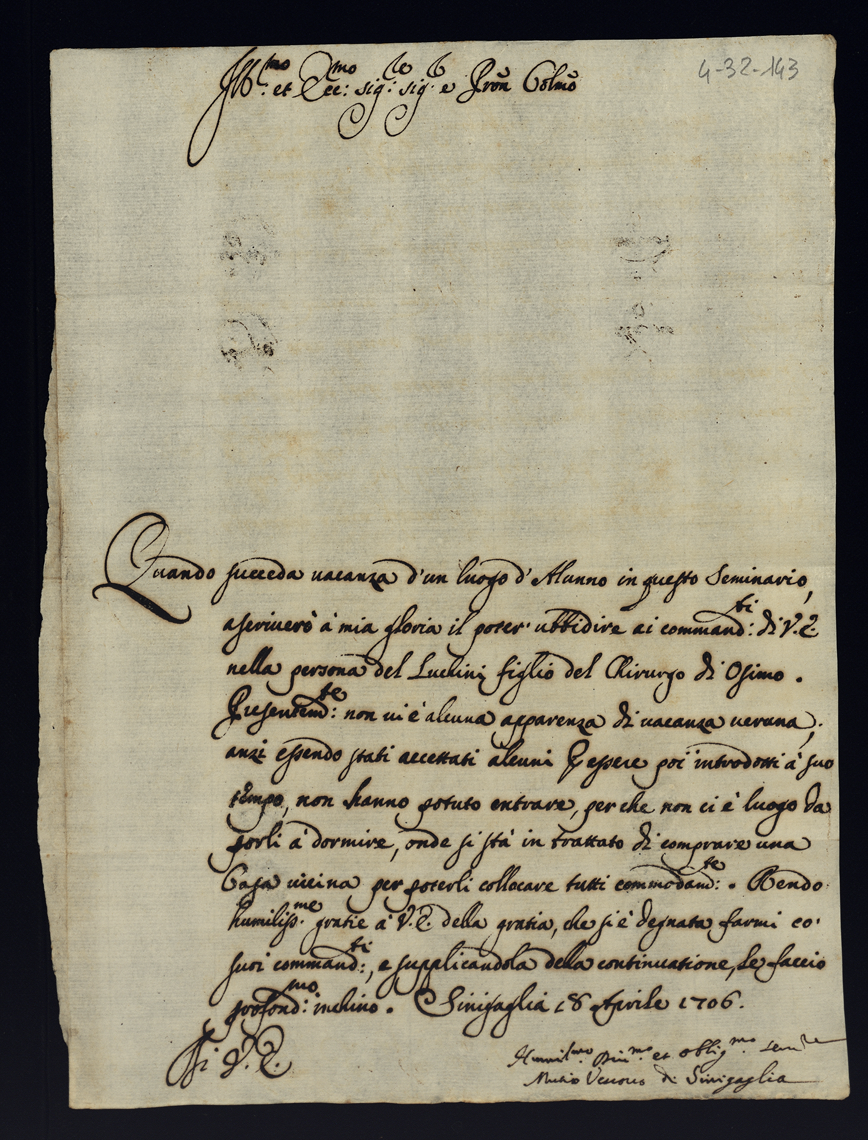 4-32-143
Ill:mo et Ecc:mo Sig:re Sig:r e Pron Colmo
Quando succeda vacanza d'un luogo d'Alunno in questo Seminario,
ascriverò à mia gloria il poter' ubbidire ai command:ti di V.E.
nella persona del Luchini figlio del Chirurgo di Osimo.
Presentem:te non vi è alcuna apparenza di vacanza veruna;
anzi essendo stati accettati alcuni p essere poi introdotti à suo
tempo, non hanno potuto entrare, per che non ci è luogo da
porli à dormire, onde si stà in trattato di comprare una
Casa vicina per poterli collocare tutti commodam:te. Rendo
humiliss:me gratie à V.E. della gratia, che si è degnata farmi co'
suoi command:ti, e supplicandola della continuatione, le faccio
profond:mo inchino. Sinigaglia 18 Aprile 1706.
Di V.E.
Humil:mo Di:mo et oblig:mo
di Sinigaglia